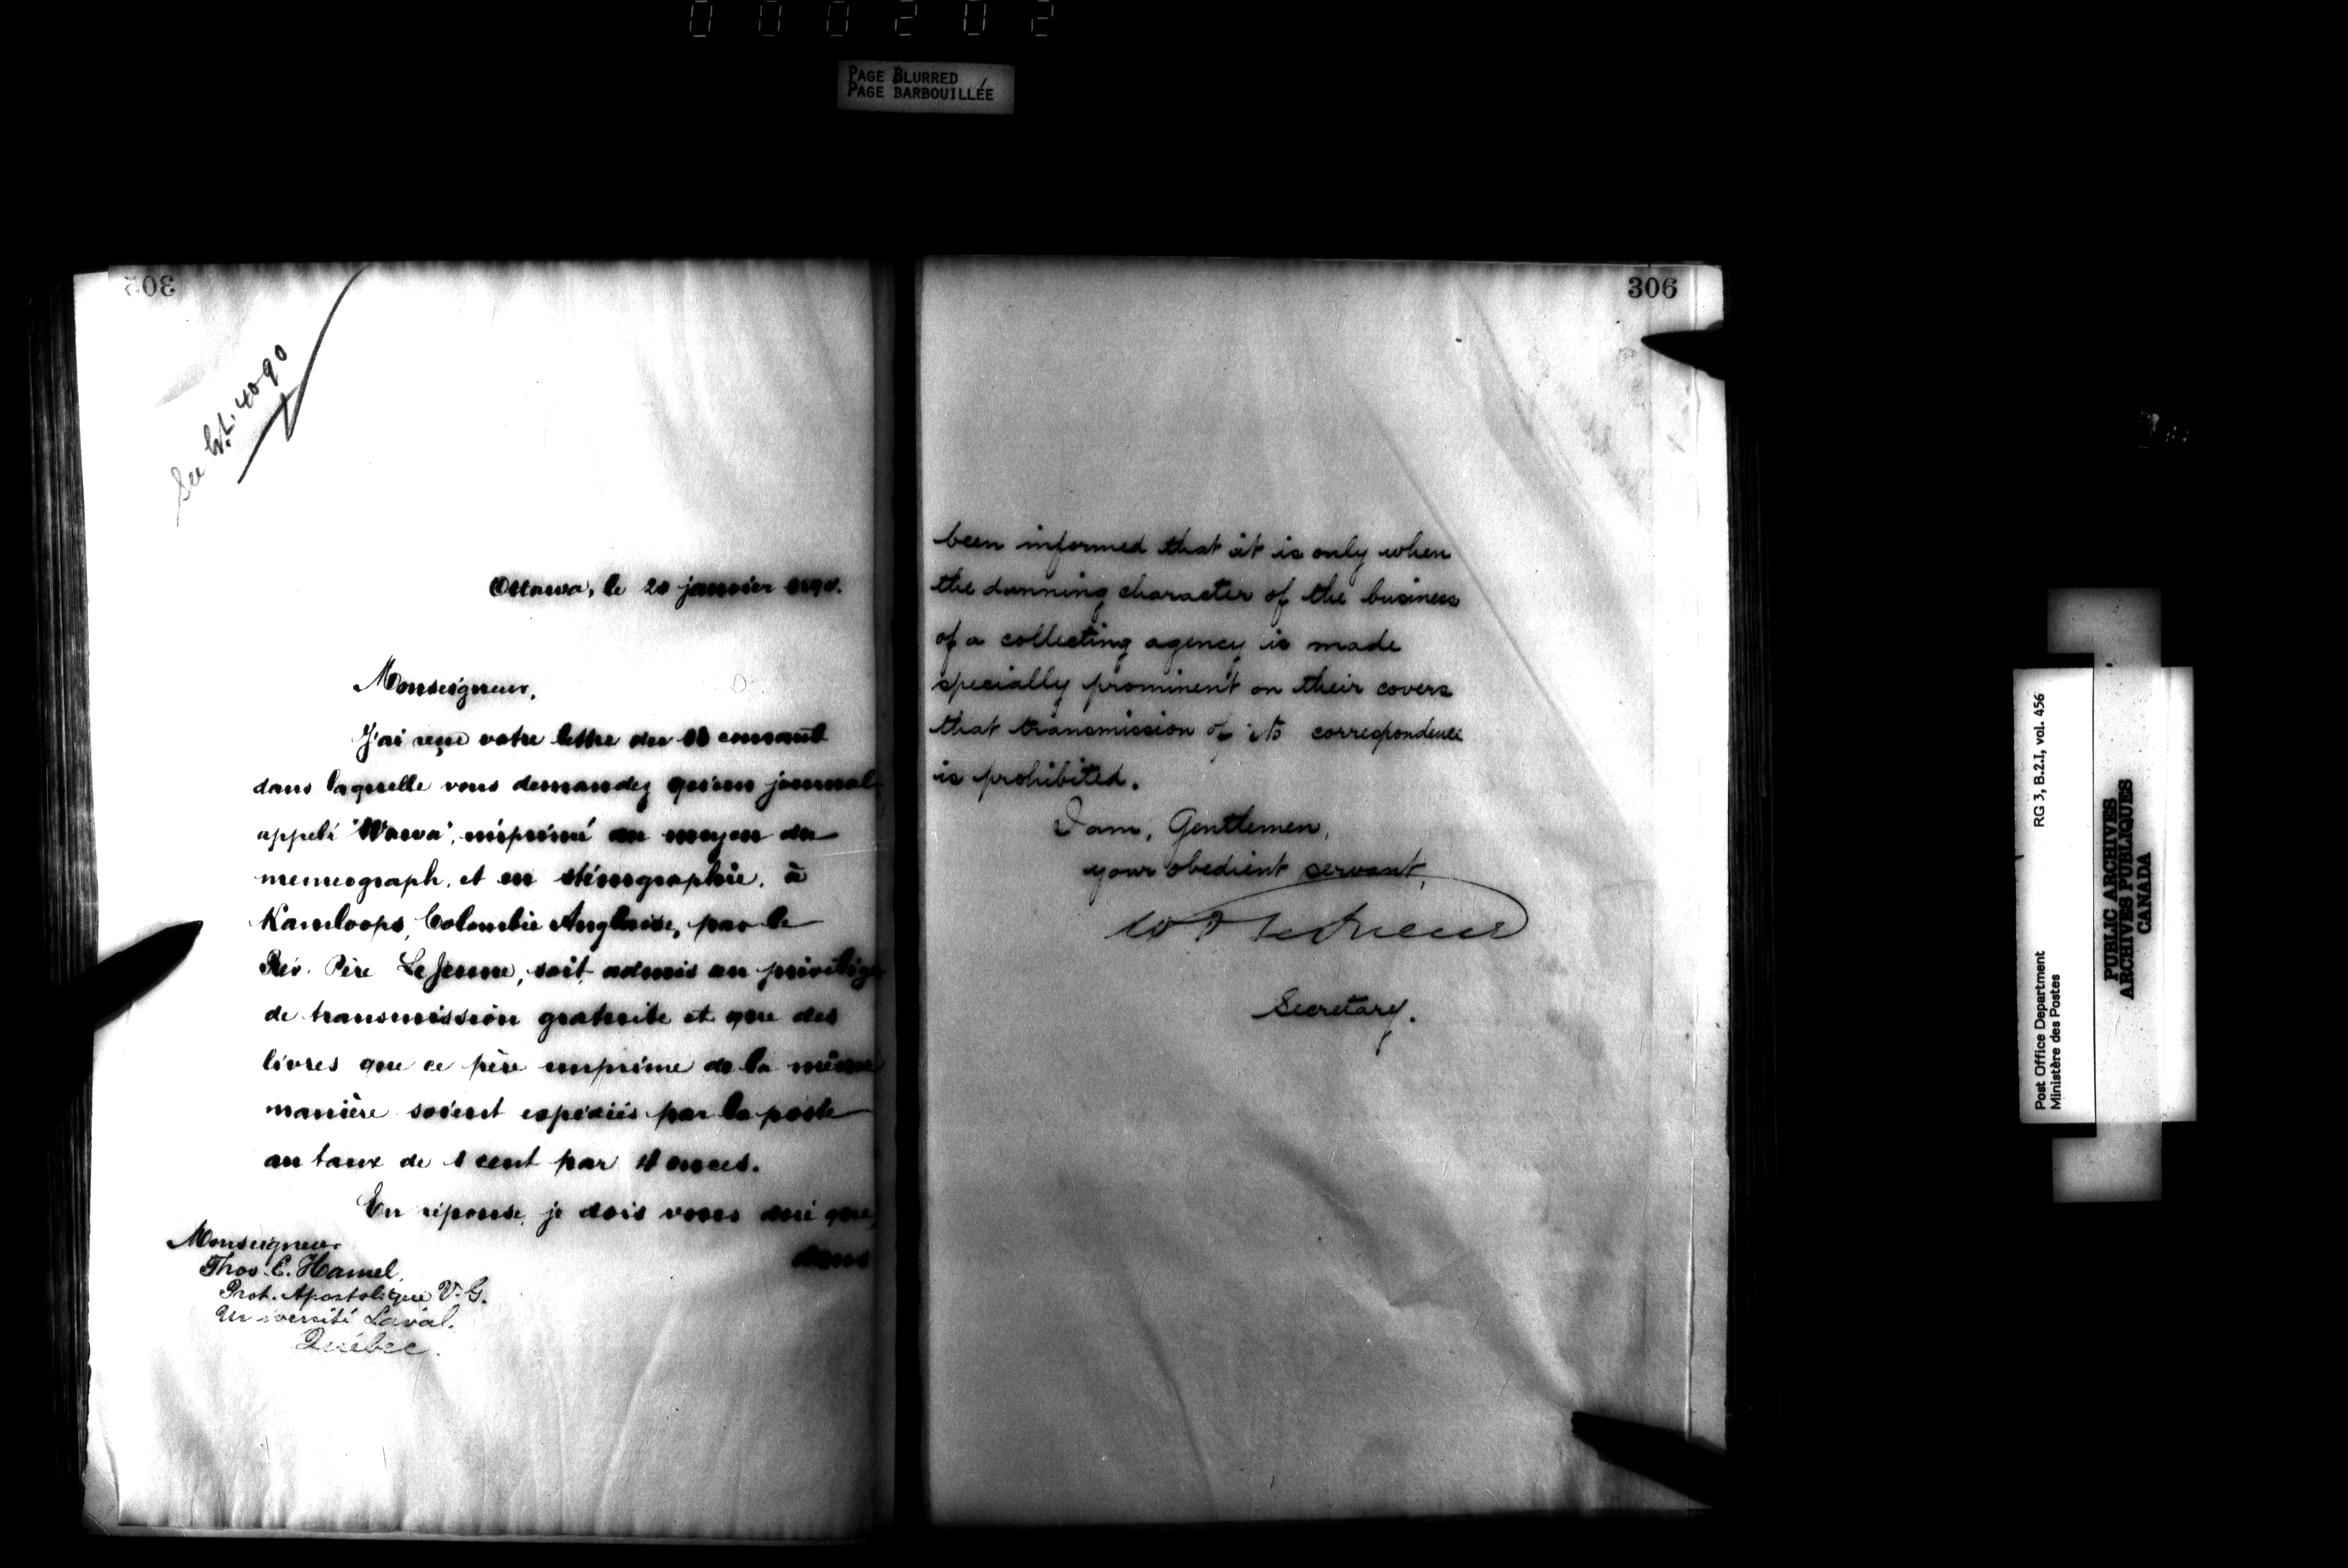 000202
PAGE BLURRED
PAGE BARBOUILLÉE
305
See Lt. 40-90
Ottawa, le 20 janvier
Monseigneur,
J'ai reçu votre lettre du courant
dans laquelle vous demandez qu'un journal
appelé "Wawa", imprimé au moyen du
memeograph, et en sténographie, à
Kamloops, Colombie Anglaise, par le
Rév. Père LeJeune, soit admis au privilège
de transmission gratuite et que des
livres que ce père imprime de la même
manière soient expédiés par la poste
au taux de 1 cent par 4 onces.
En réponse, je dois vous dire que,
dans
Monseigneur
Thos. E. Hamel,
Prot. Apostolique V. G.
Université Laval.
Québec.
306
been informed that it is only when
the dunning character of the business
of a collecting agency is made
specially prominent on their covers
that transmission of its correspondence
is prohibited.
I am, Gentlemen,
your obedient servant,
Secretary.
Post Office Department
Ministère des Postes
RG 3, B.2.I, vol. 456
PUBLIC ARCHIVES
ARCHIVES PUBLIQUES
CANADA